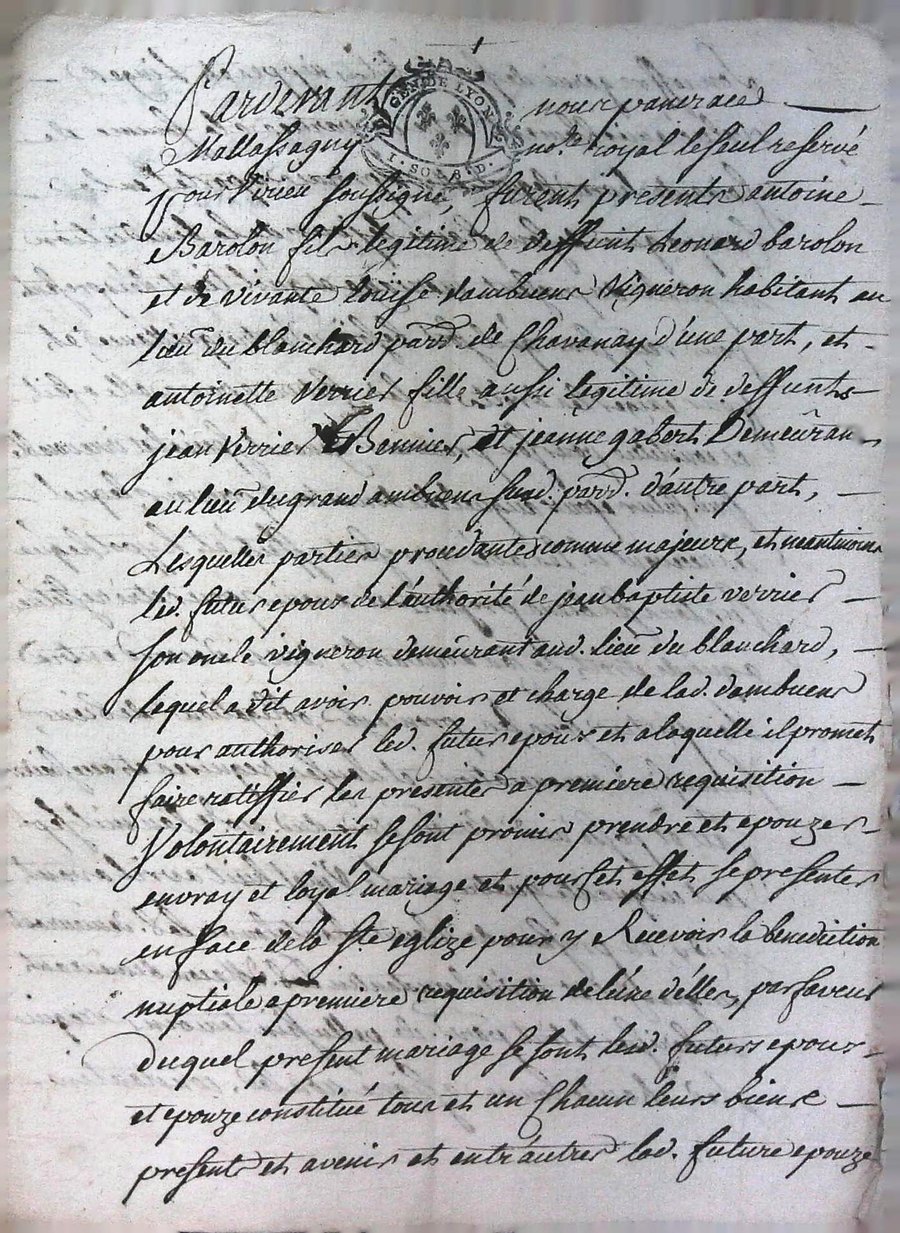 Pardevant nous pancrace
GEN. DE LYON
1. SOL 8. D.
Mallassagny no.re royal le seul reservé
pour Virieu soussigné, furent presents antoine
Barolon fils legitime de deffunt Leonard barolon
et de vivante Louise dambuens vigneron habitant au
lieu du blanchard parr. de Chavanay d'une part, et
antoinette Verrier fille aussi legitime de deffunts
jean Verrier Bennier, et jeanne gabert Demeuran
au lieu du grand ambuens sud. parr. d'autre part,
Lesquelles parties procedantes comme majeure, et neantmoins
led. futur epoux de l'authorité de jean baptiste verrier
son oncle vigneron demeurant aud. lieu du blanchard,
lequel a dit avoir pouvoir et charge de lad. dambuens
pour authoriser led. futur epoux et a laquelle il promet
faire ratiffier les presentes a premiere requisition
Volontairement se sont promis prendre et epouzer
en vray et loyal mariage et pour cet effet se presenter
en face de la Ste eglize pour y Recevoir la benediction
nuptiale a premiere requisition de l'une d'elles, par faveur
duquel present mariage se sont lesd. futurs epoux
et epouze constitué tous et un Chacun leurs biens
present et avenir et entr'autres lad. future epouze